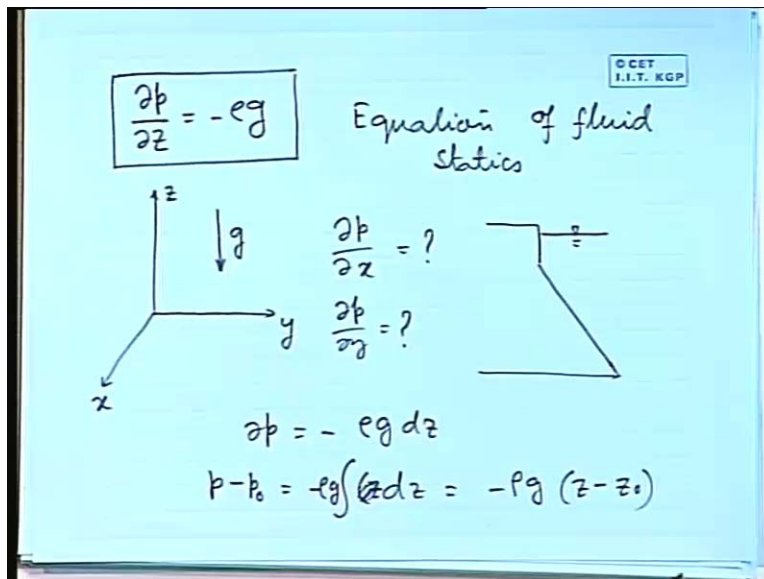 © CET
I.I.T. KGP
∂p/∂z = -ρg
Equation of fluid
statics
z
g
∂p/∂x = ?
y
∂p/∂y = ?
x
∂p = - ρg dz
p-p₀ = -ρg∫dz = -ρg (z-z₀)